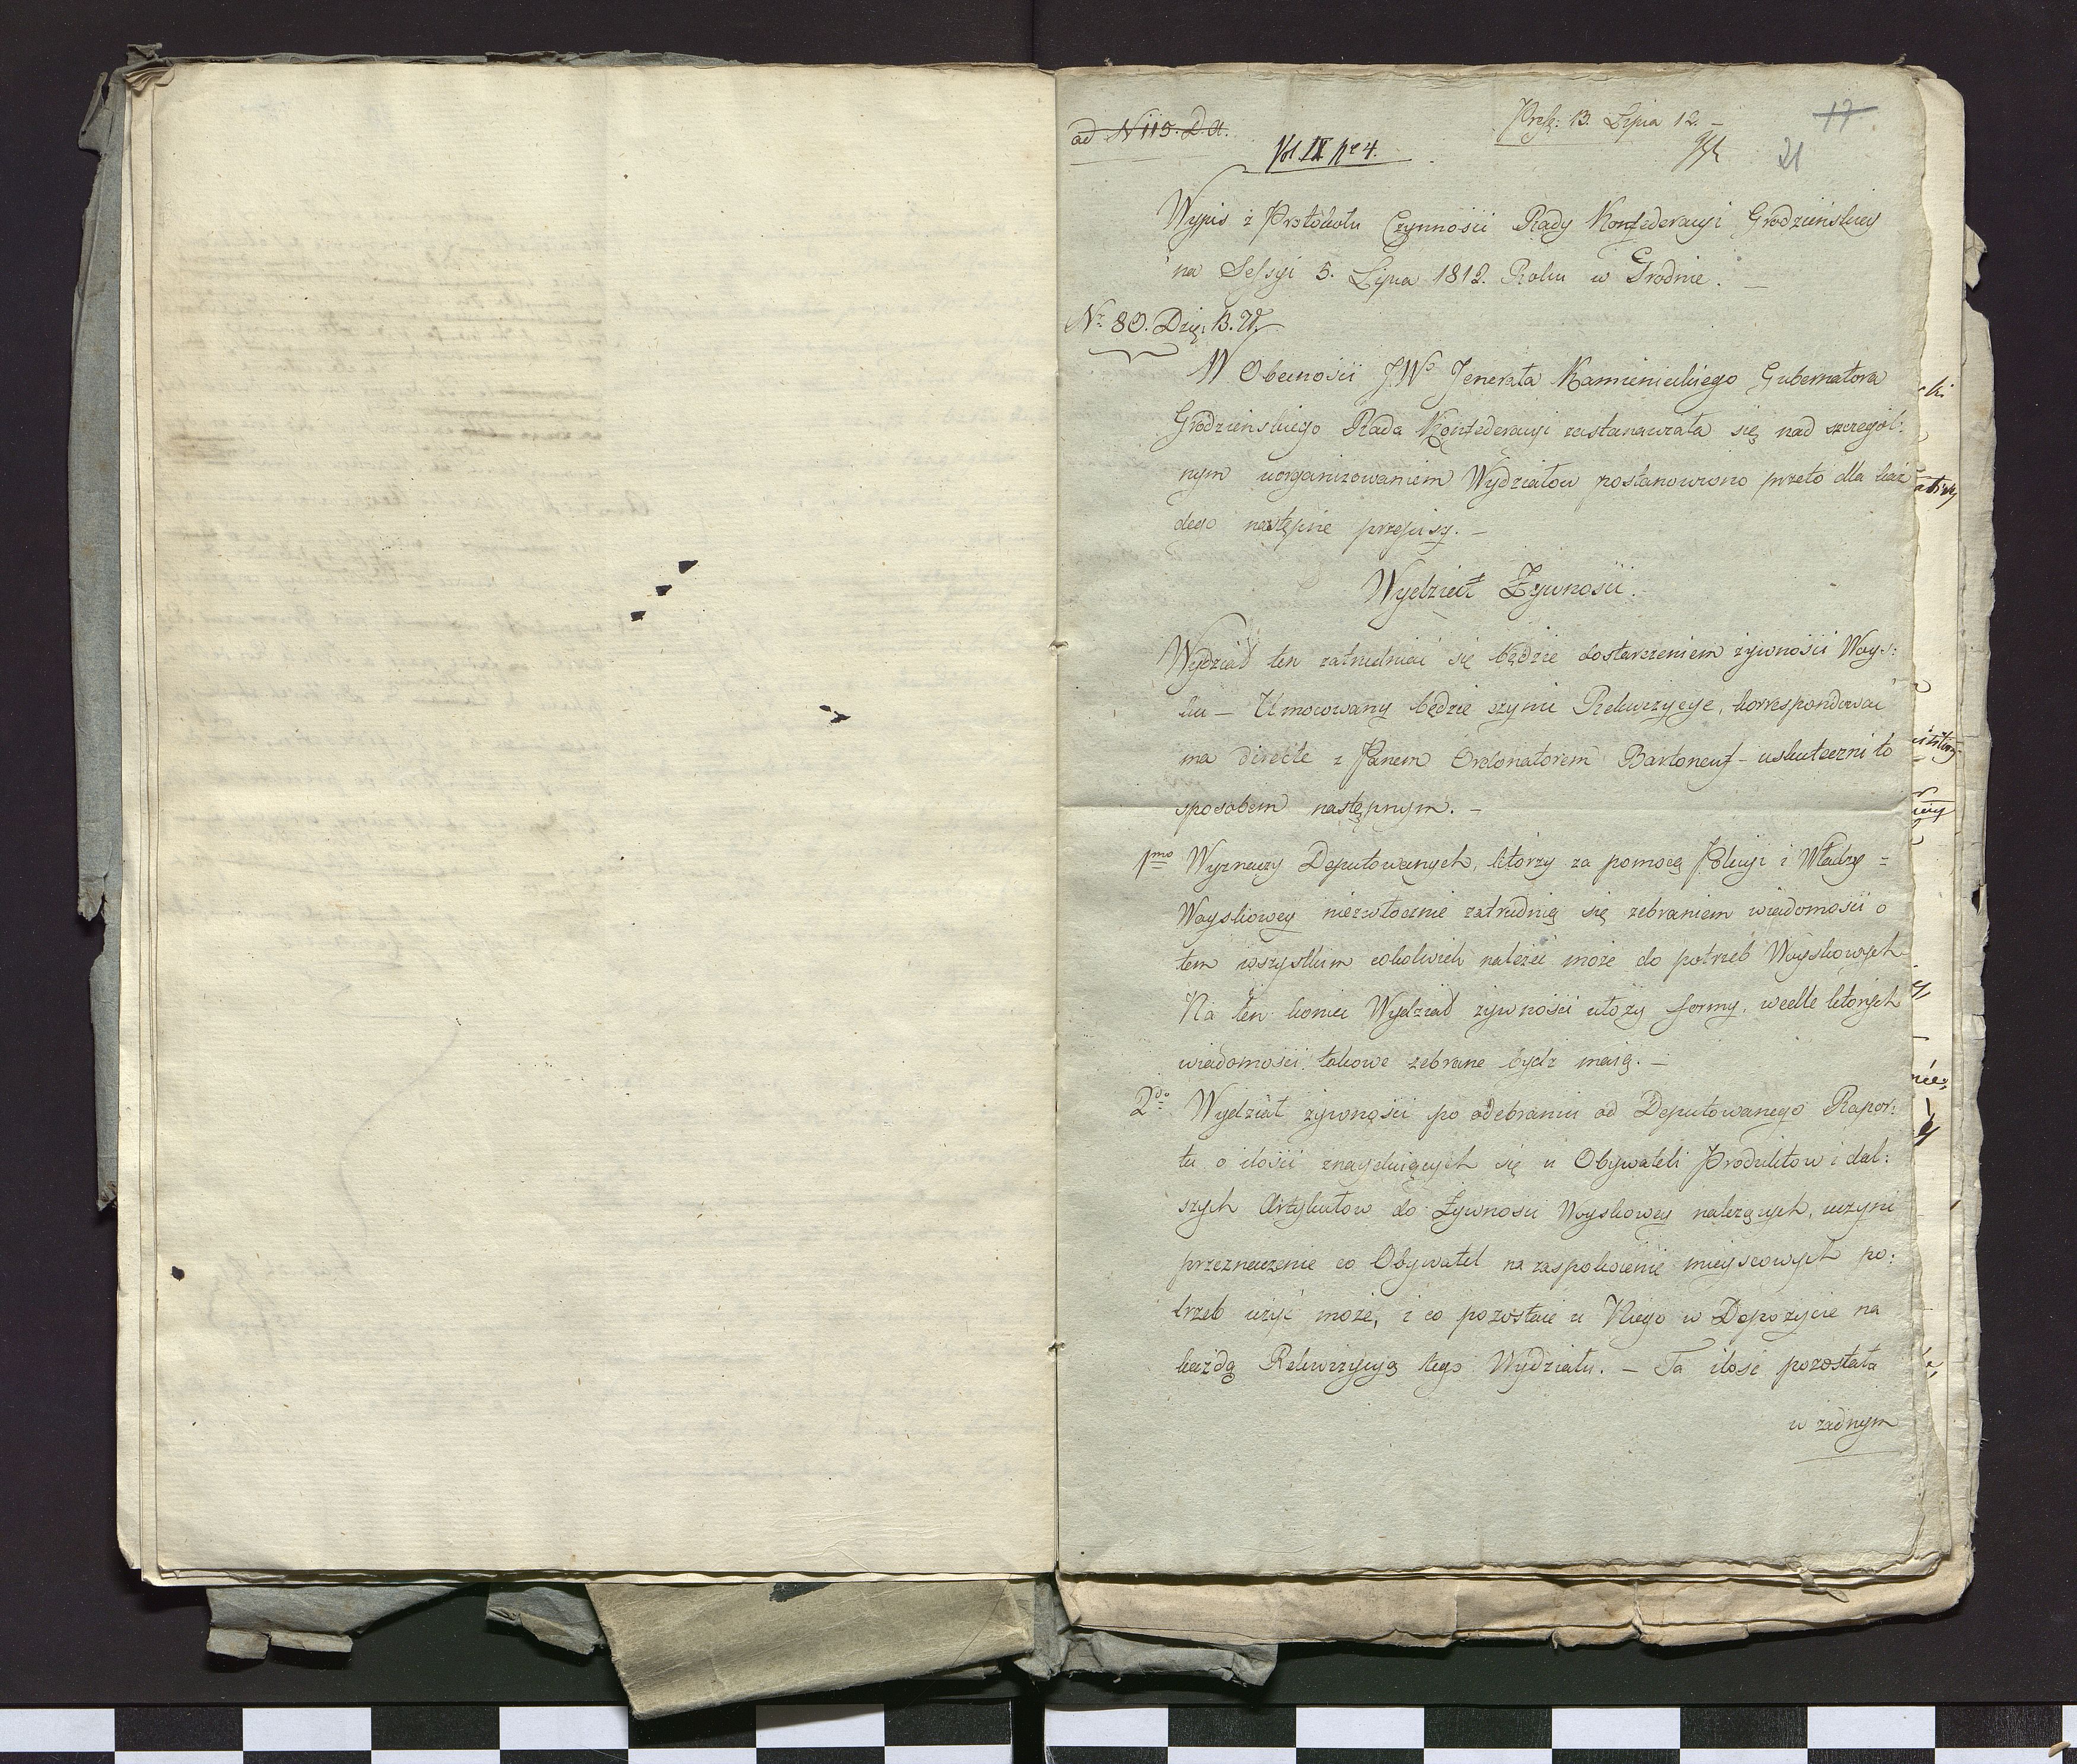 ad N 115. D. U.
Vol IX Nr 4.
Przp: 13. Lipca 12. –
17
21
Wypis z Protokołu Czynności Rady Konfederacyi Grodzieńskiey
na Sessyi 5. Lipca 1812. Roku w Grodnie. –
Nr 80. Dzię: B. W.
W Obecności J.Wo Jenerała Kamienieckiego Gubernatora
Grodzienskiego Rada Konfederacyi zastanawiała się nad szczegól:
nym uorganizowaniem Wydziałow postanowiono przeto dla każ
dego następne przepisy. –
Wydział Żywności.
Wydział ten zatrudniać się będzie dostarczeniem żywności Woys:
ku – Umocowany będzie czynić Rekwizycye, korrespondować
ma directe z Panem Ordonatorem Bartoneuf – uskuteczni to
sposobem następnym. –
1mo Wyznaczy Deputowanych, którzy za pomocą Policyi i Władzy =
Woyskowey niezwłocznie zatrudnią się zebraniem wiadomości o
tem wszystkim cokolwiek należeć może do potrzeb Woyskowych
Na ten koniec Wydział żywności ułoży formy, wedle których
wiadomości takowe zebrane bydź maią. –
2do Wydział żywności po odebraniu od Deputowanego Rapor:
tu o ilości znayduiących się u Obywateli Produktow i dal:
szych Artykułow do Żywnosci Woyskowey należących, uczyni
przeznaczenie co Obywatel na zaspokoienie mieyscowych po:
trzeb użyć może, i co pozostaie u Niego w Depozycie na
każdą Rekwizycyą tego Wydziału. – Ta ilość pozostała
w żadnym